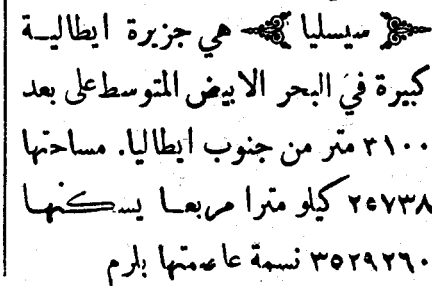 سيسليا هي جزيرة ايطالية
كبيرة في البحر الابيض المتوسط على بعد
٣١٠٠ متر من جنوب ايطاليا. مساحتها
٢٥٧٣٨ كيلو مترا مربعا يسكنها
٣٥٢٩٢٦٠ نسمة عاصمتها بلرم